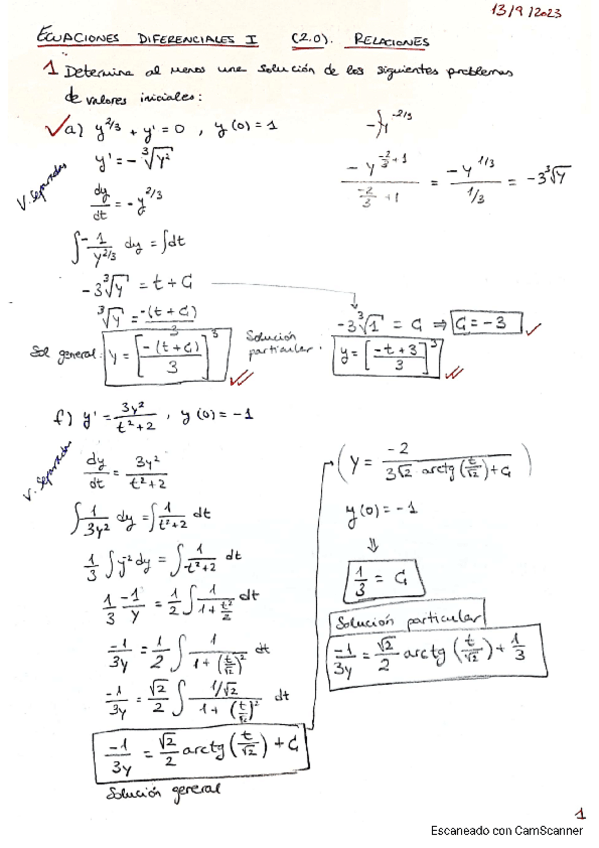 13/9/2023
ECUACIONES DIFERENCIALES I (2.0). RELACIONES
1 Determina al menos una solución de los siguientes problemas
de valores iniciales:
a) y^{2/3} + y' = 0 , y(0) = 1
V. Separadas
y' = -∛y²
dy/dt = -y^{2/3}
∫ -1/y^{2/3} dy = ∫dt
-3∛y = t + C
∛y = -(t + C)/3
Sol general: y = [-(t + C)/3]³
-y^{-2/3}
-y^{-2/3 + 1}/(-2/3 + 1) = -y^{1/3}/(1/3) = -3∛y
-3∛1 = C ⇒ C = -3
Solución particular. y = [(-t + 3)/3]³
f) y' = 3y²/(t² + 2) , y(0) = -1
V. Separadas
dy/dt = 3y²/(t² + 2)
∫ 1/3y² dy = ∫ 1/(t² + 2) dt
1/3 ∫ y^{-2} dy = ∫ 1/(t² + 2) dt
1/3 -1/y = 1/2 ∫ 1/(1 + t²/2) dt
-1/3y = 1/2 ∫ 1/(1 + (t/√2)²) dt
-1/3y = √2/2 ∫ (1/√2)/(1 + (t/√2)²) dt
-1/3y = √2/2 arctg(t/√2) + C
Solución general
(y = -2/(3√2 arctg(t/√2) + C))
y(0) = -1
⇓
1/3 = C
Solución particular
-1/3y = √2/2 arctg(t/√2) + 1/3
1
Escaneado con CamScanner